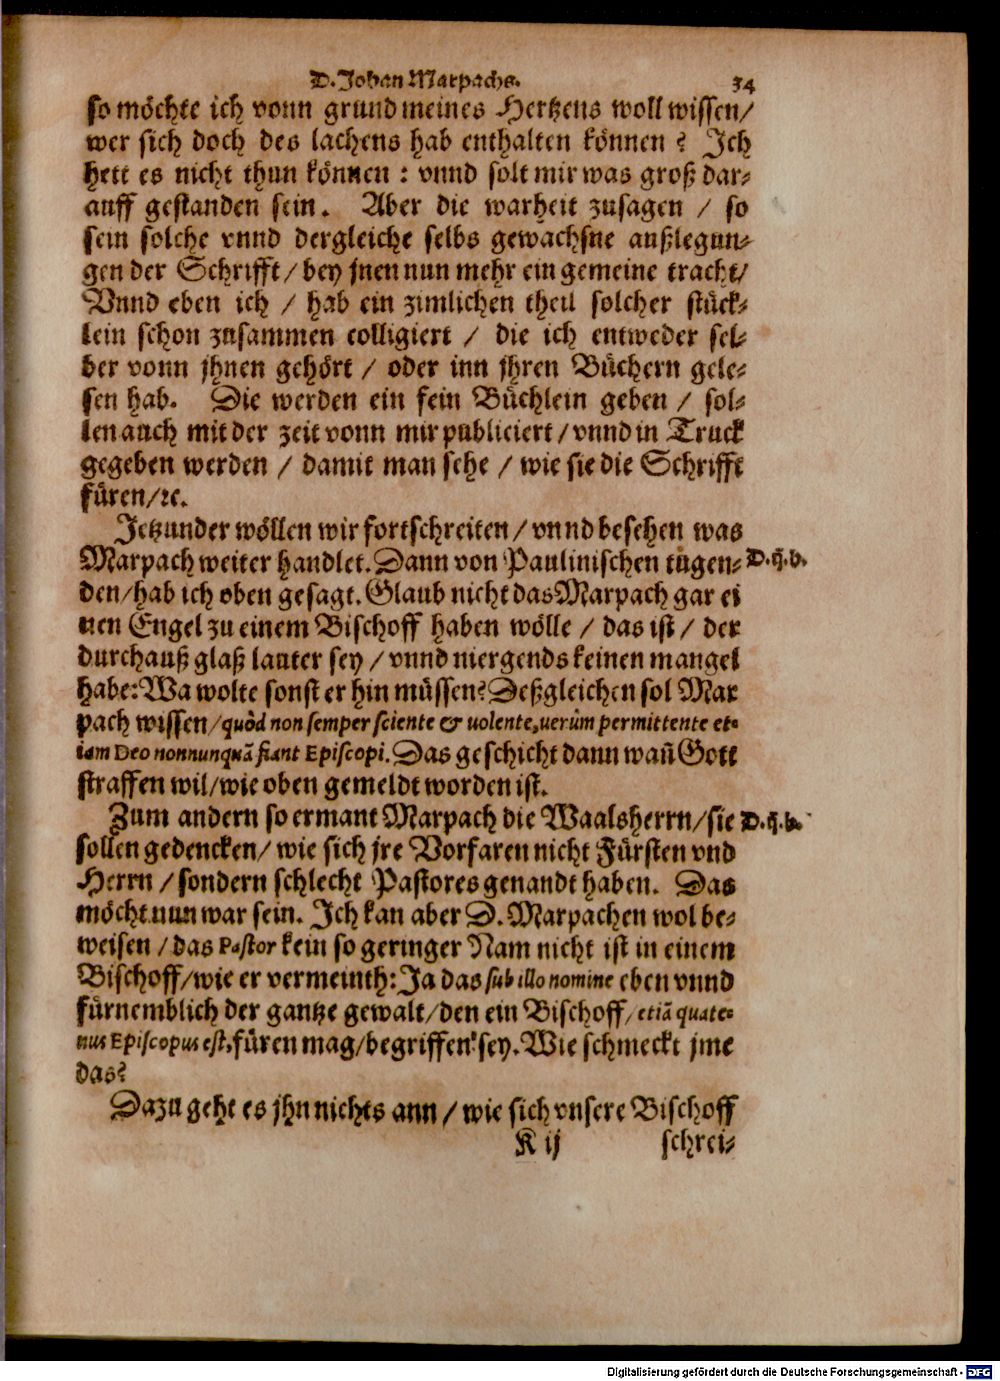 D. Johan Marpachs. 34
so möchte ich vonn grund meines Hertzens woll wissen/
wer sich doch des lachens hab enthalten können? Ich
hett es nicht thun können: vnnd solt mir was groß dar-
auff gestanden sein. Aber die warheit zusagen / so
sein solche vnnd dergleiche selbs gewachsne außlegun-
gen der Schrifft/ bey jnen nun mehr ein gemeine tracht/
Vnnd eben ich / hab ein zimlichen theil solcher stück-
lein schon zusammen colligiert / die ich entweder sel-
ber vonn jhnen gehört / oder inn jhren Büchern gele-
sen hab. Die werden ein fein Büchlein geben / sol-
len auch mit der zeit vonn mir publiciert/ vnnd in Truck
gegeben werden / damit man sehe / wie sie die Schrifft
füren/ꝛc.
Jetzunder wöllen wir fortschreiten/ vnnd besehen was
Marpach weiter handlet. Dann von Paulinischen tugen- D. ij. b.
den/hab ich oben gesagt. Glaub nicht das Marpach gar ei
nen Engel zu einem Bischoff haben wölle / das ist / der
durchauß glaß lauter sey / vnnd niergends keinen mangel
habe: Wa wolte sonst er hin müssen? Deßgleichen sol Mar
pach wissen/ quòd non semper sciente & uolente, uerùm permittente et-
iam Deo nonnunquã fiant Episcopi. Das geschicht dann wañ Gott
straffen wil/wie oben gemeldt worden ist.
Zum andern so ermant Marpach die Waalsherrn/sie D. ij. b.
sollen gedencken/ wie sich jre Vorfaren nicht Fürsten vnd
Herrn / sondern schlecht Pastores genandt haben. Das
möcht nun war sein. Ich kan aber D. Marpachen wol be-
weisen / das Pastor kein so geringer Nam nicht ist in einem
Bischoff/wie er vermeinth: Ja das sub illo nomine eben vnnd
fürnemblich der gantze gewalt/den ein Bischoff, etiã quate-
nus Episcopus est, füren mag/begriffen sey. Wie schmeckt jme
das?
Dazu geht es jhn nichts ann / wie sich vnsere Bischoff
K ij schrei-
Digitalisierung gefördert durch die Deutsche Forschungsgemeinschaft - DFG